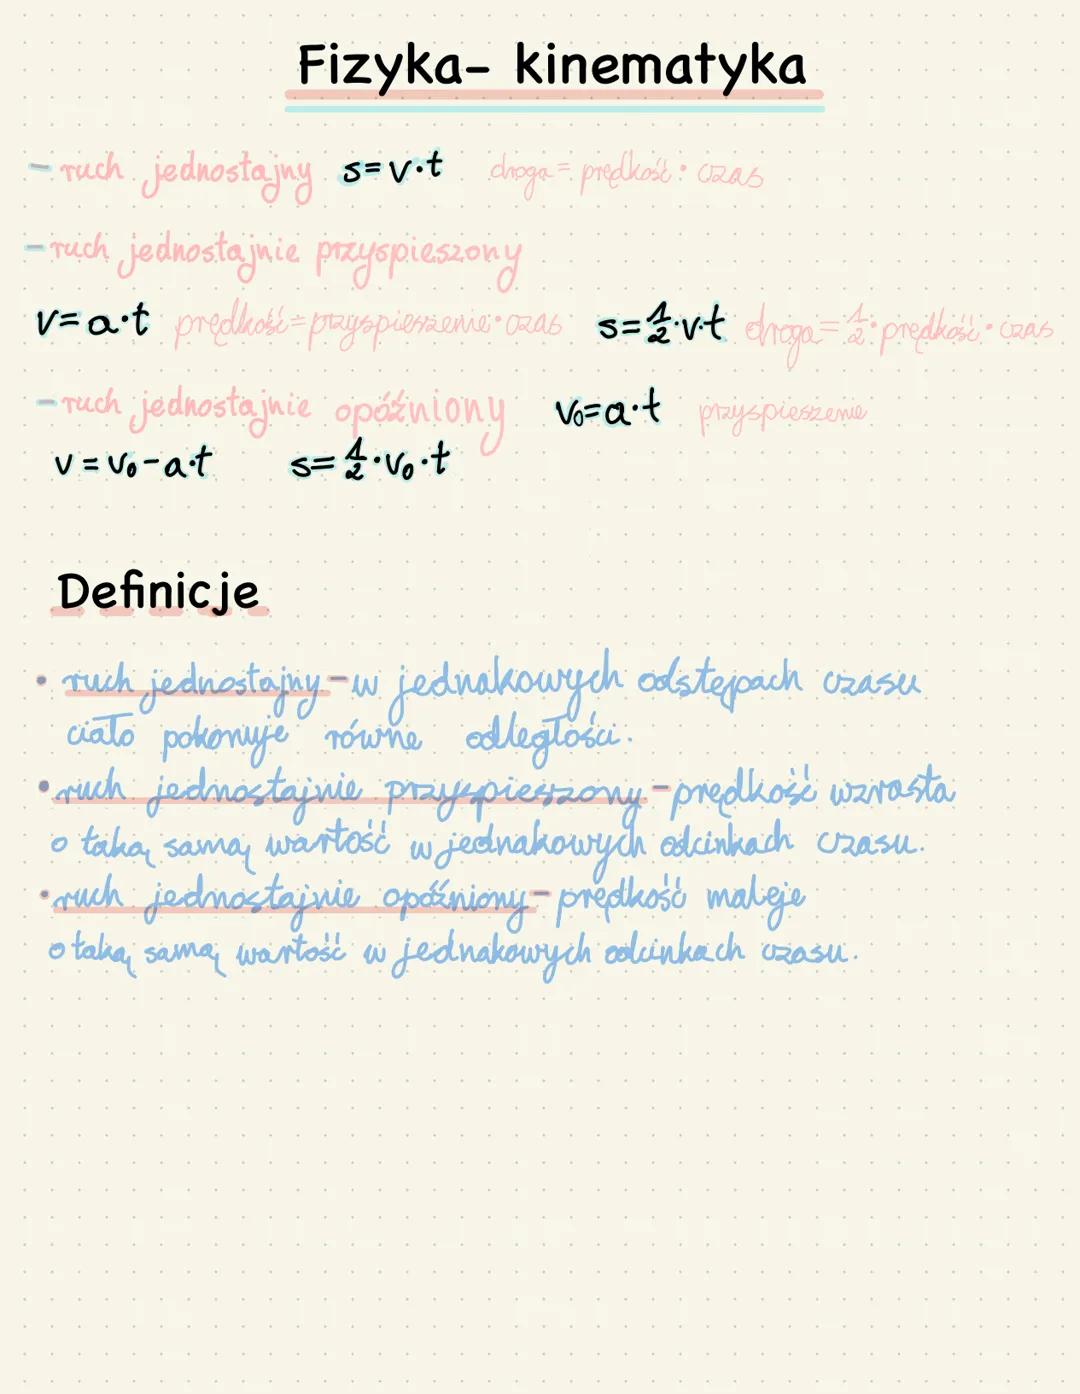 Fizyka- kinematyka
- ruch jednostajny s=v·t droga = prędkość · czas
- ruch jednostajnie przyspieszony
v=a·t prędkość=przyspieszenie·czas s=1/2·v·t droga=1/2·prędkość·czas
- ruch jednostajnie opóźniony v₀=a·t przyspieszenie
v=v₀-a·t s=1/2·v₀·t
Definicje
• ruch jednostajny - w jednakowych odstępach czasu
ciało pokonuje równe odległości.
• ruch jednostajnie przyspieszony - prędkość wzrasta
o taką samą wartość w jednakowych odcinkach czasu.
• ruch jednostajnie opóźniony - prędkość maleje
o taką samą wartość w jednakowych odcinkach czasu.